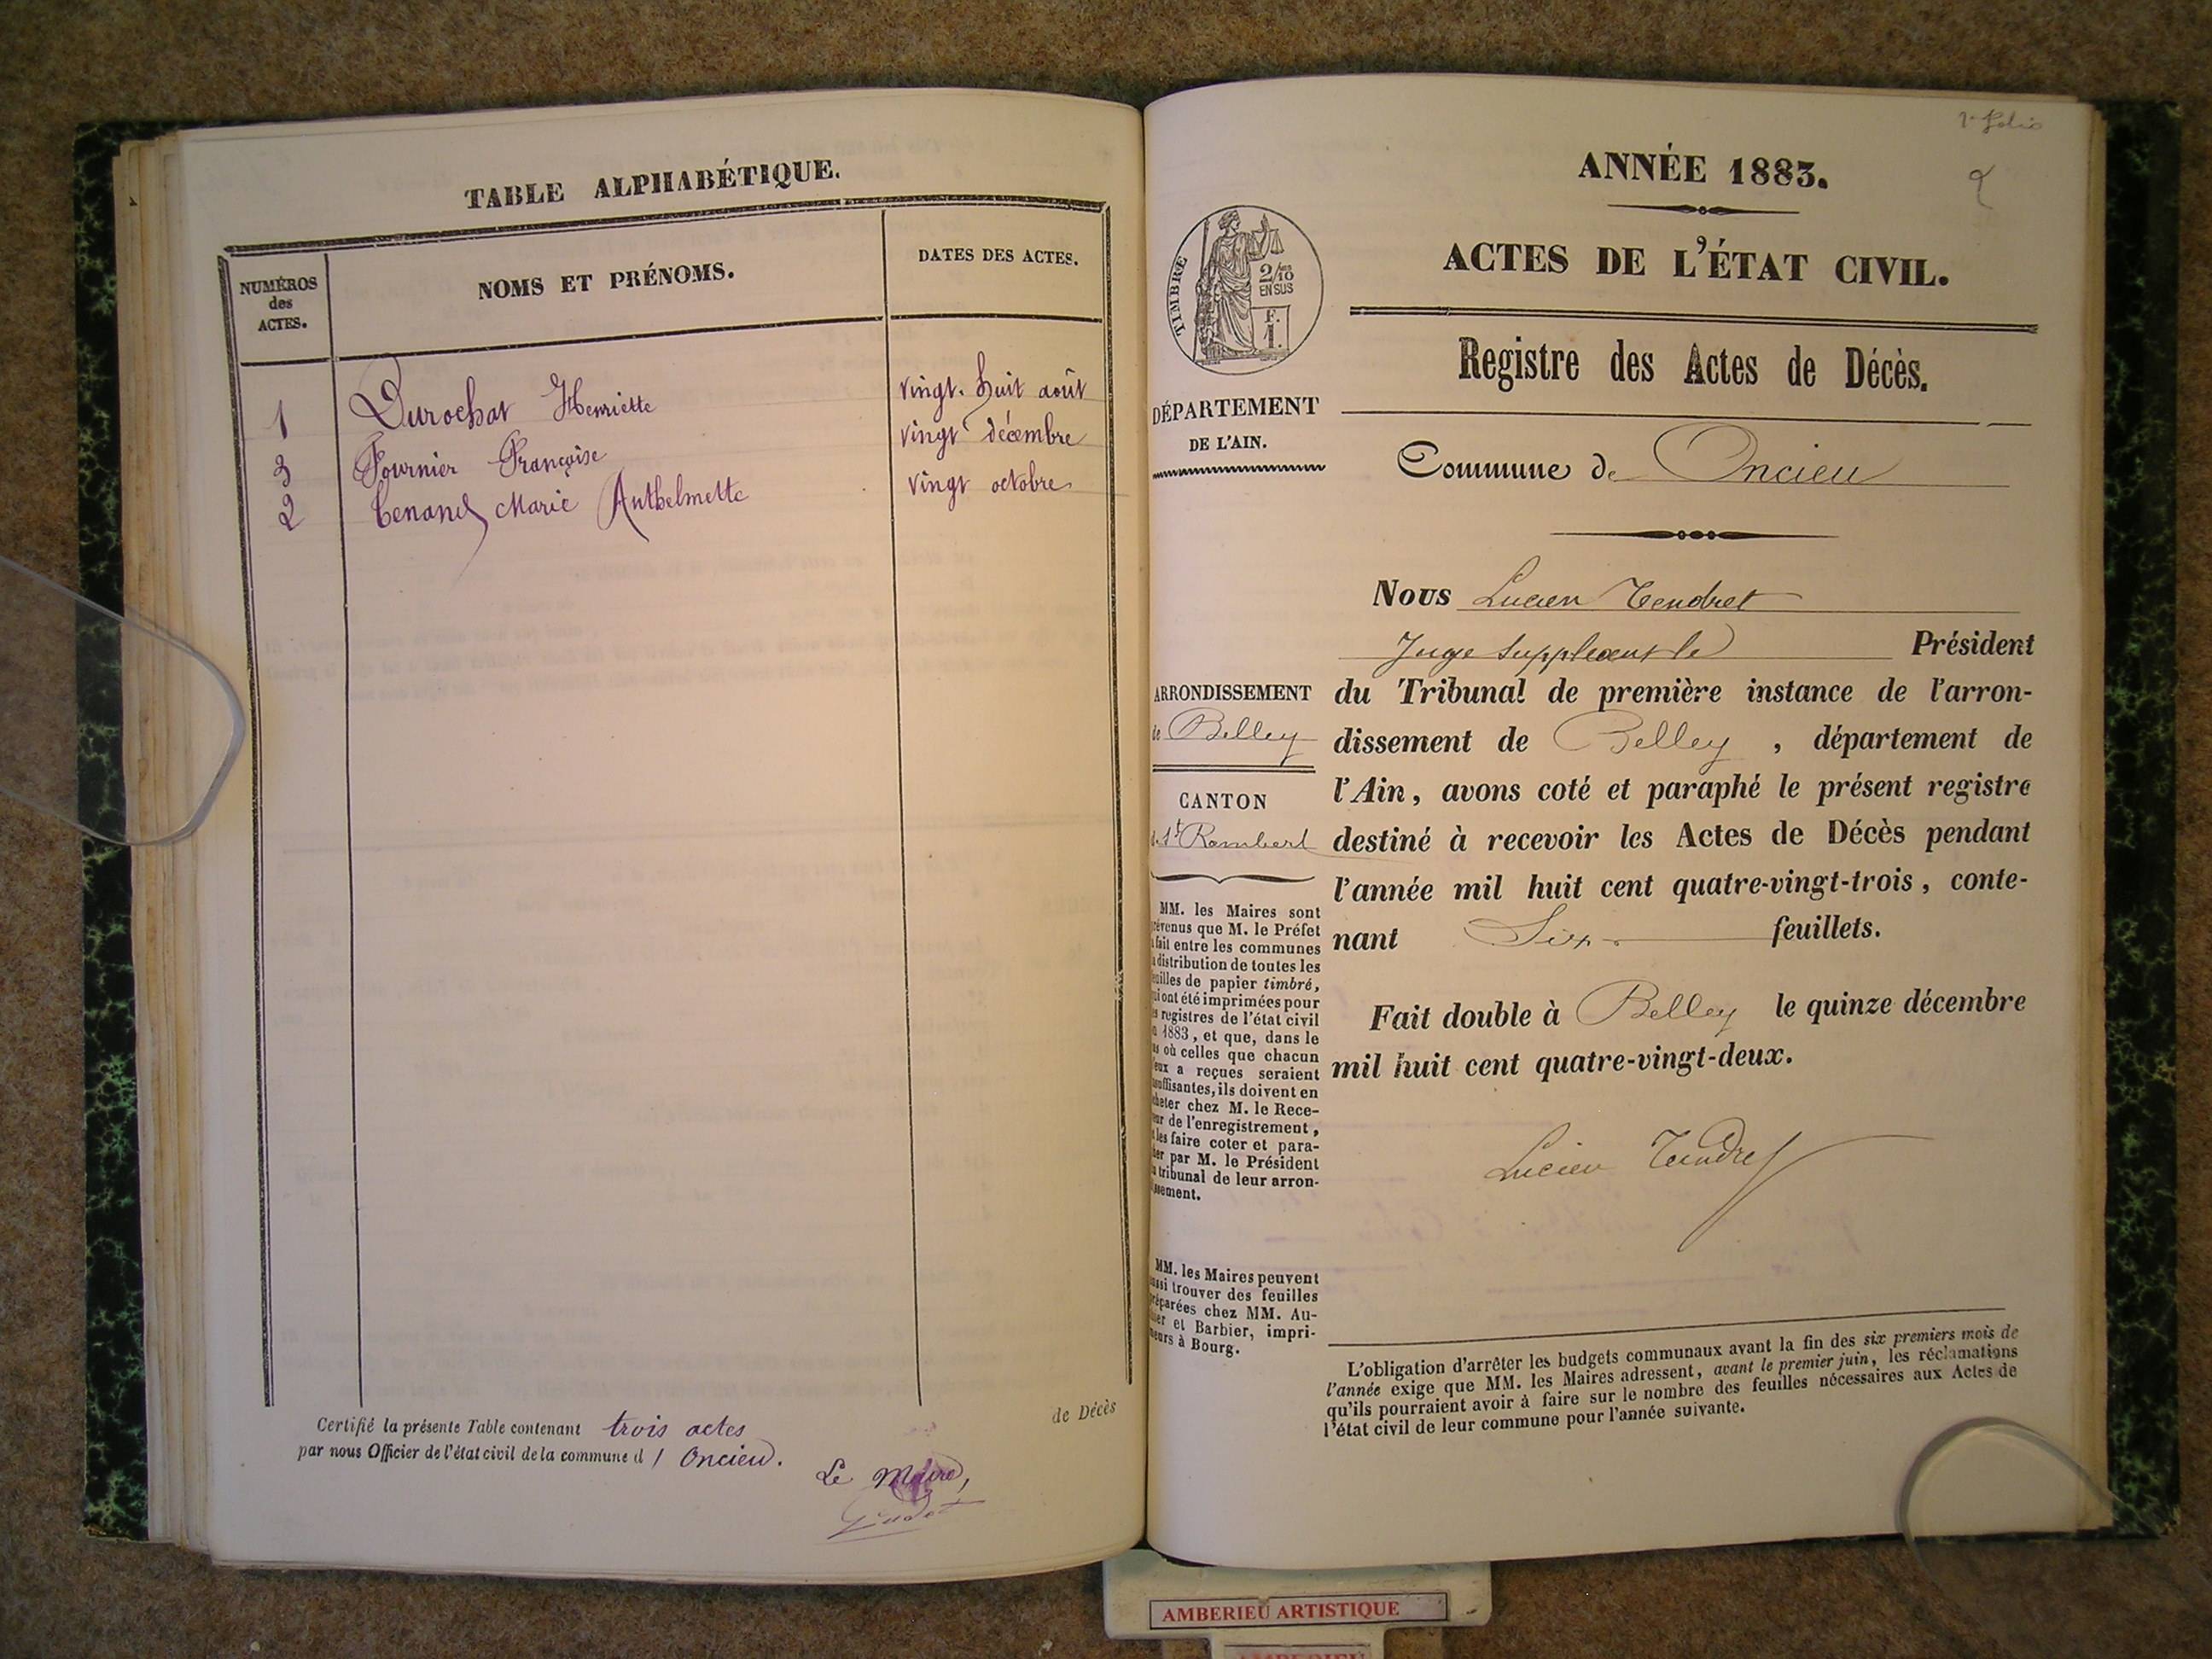 TABLE ALPHABÉTIQUE.
NUMÉROS
des
ACTES.
NOMS ET PRÉNOMS.
DATES DES ACTES.
1 Durochat Henriette vingt-huit août
3 Fournier Françoise vingt décembre
2 Tenand Marie Anthelmette vingt octobre
Certifié la présente Table contenant trois actes de Décès
par nous Officier de l'état civil de la commune d'Oncieu.
Le Maire,
1er folio
ANNÉE 1883.
ACTES DE L'ÉTAT CIVIL.
TIMBRE
2/10
EN SUS
F.
1.
Registre des Actes de Décès.
DÉPARTEMENT
DE L'AIN.
Commune de Oncieu
Nous Lucien Tendret
Juge Suppléant le Président
du Tribunal de première instance de l'arron-
dissement de Belley, département de
l'Ain, avons coté et paraphé le présent registre
destiné à recevoir les Actes de Décès pendant
l'année mil huit cent quatre-vingt-trois, conte-
nant Six feuillets.
Fait double à Belley le quinze décembre
mil huit cent quatre-vingt-deux.
Lucien Tendret
ARRONDISSEMENT
de Belley
CANTON
de St Rambert
MM. les Maires sont
prévenus que M. le Préfet
a fait entre les communes
la distribution de toutes les
feuilles de papier timbré,
qui ont été imprimées pour
les registres de l'état civil
de 1883, et que, dans le
cas où celles que chacun
d'eux a reçues seraient
insuffisantes, ils doivent en
acheter chez M. le Rece-
veur de l'enregistrement,
et les faire coter et para-
pher par M. le Président
du tribunal de leur arron-
dissement.
MM. les Maires peuvent
aussi trouver des feuilles
préparées chez MM. Au-
et Barbier, impri-
meurs à Bourg.
L'obligation d'arrêter les budgets communaux avant la fin des six premiers mois de
l'année exige que MM. les Maires adressent, avant le premier juin, les réclamations
qu'ils pourraient avoir à faire sur le nombre des feuilles nécessaires aux Actes de
l'état civil de leur commune pour l'année suivante.
AMBERIEU ARTISTIQUE
AMBERIEU